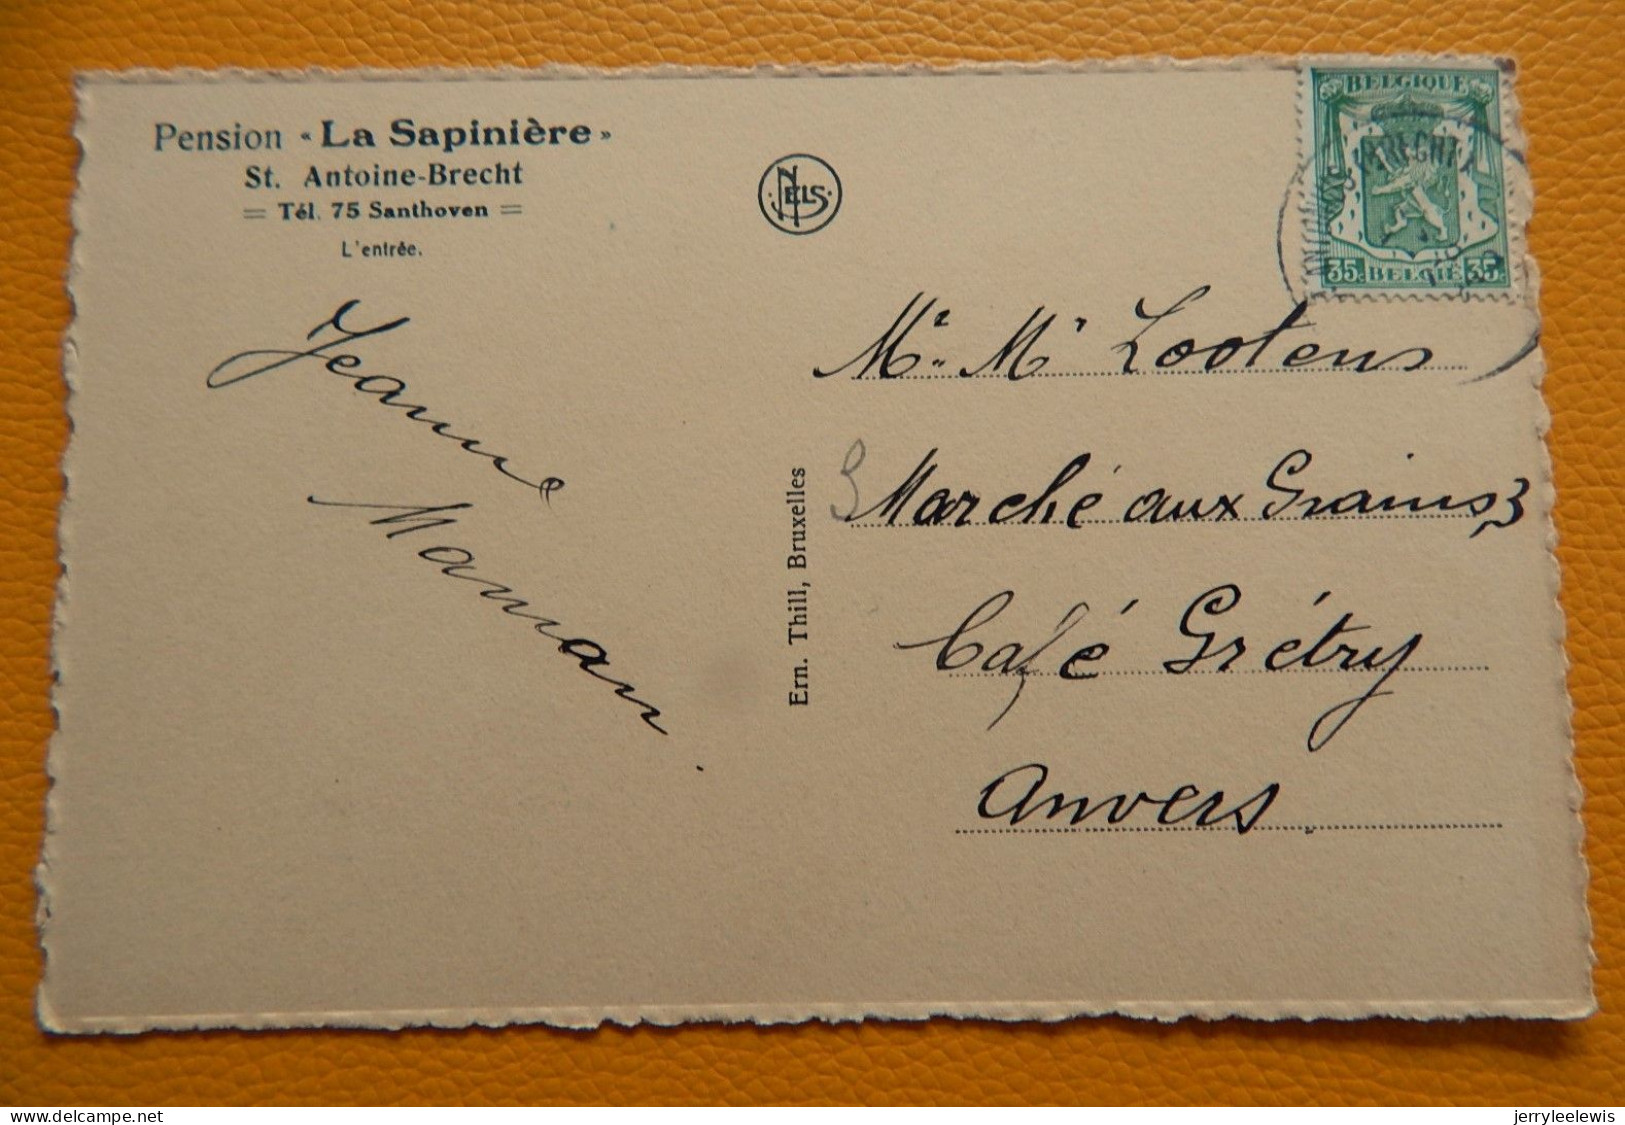 Pension « La Sapinière »
St. Antoine-Brecht
= Tél. 75 Santhoven =
L'entrée.
NELS
BELGIQUE
35c BELGIË 35c
Jeanne
Maman.
Ern. Thill, Bruxelles
Mr. Mr Lootens
Marché aux Grains, 3
Café Grétry
Anvers
delcampe.net
jerryleelewis